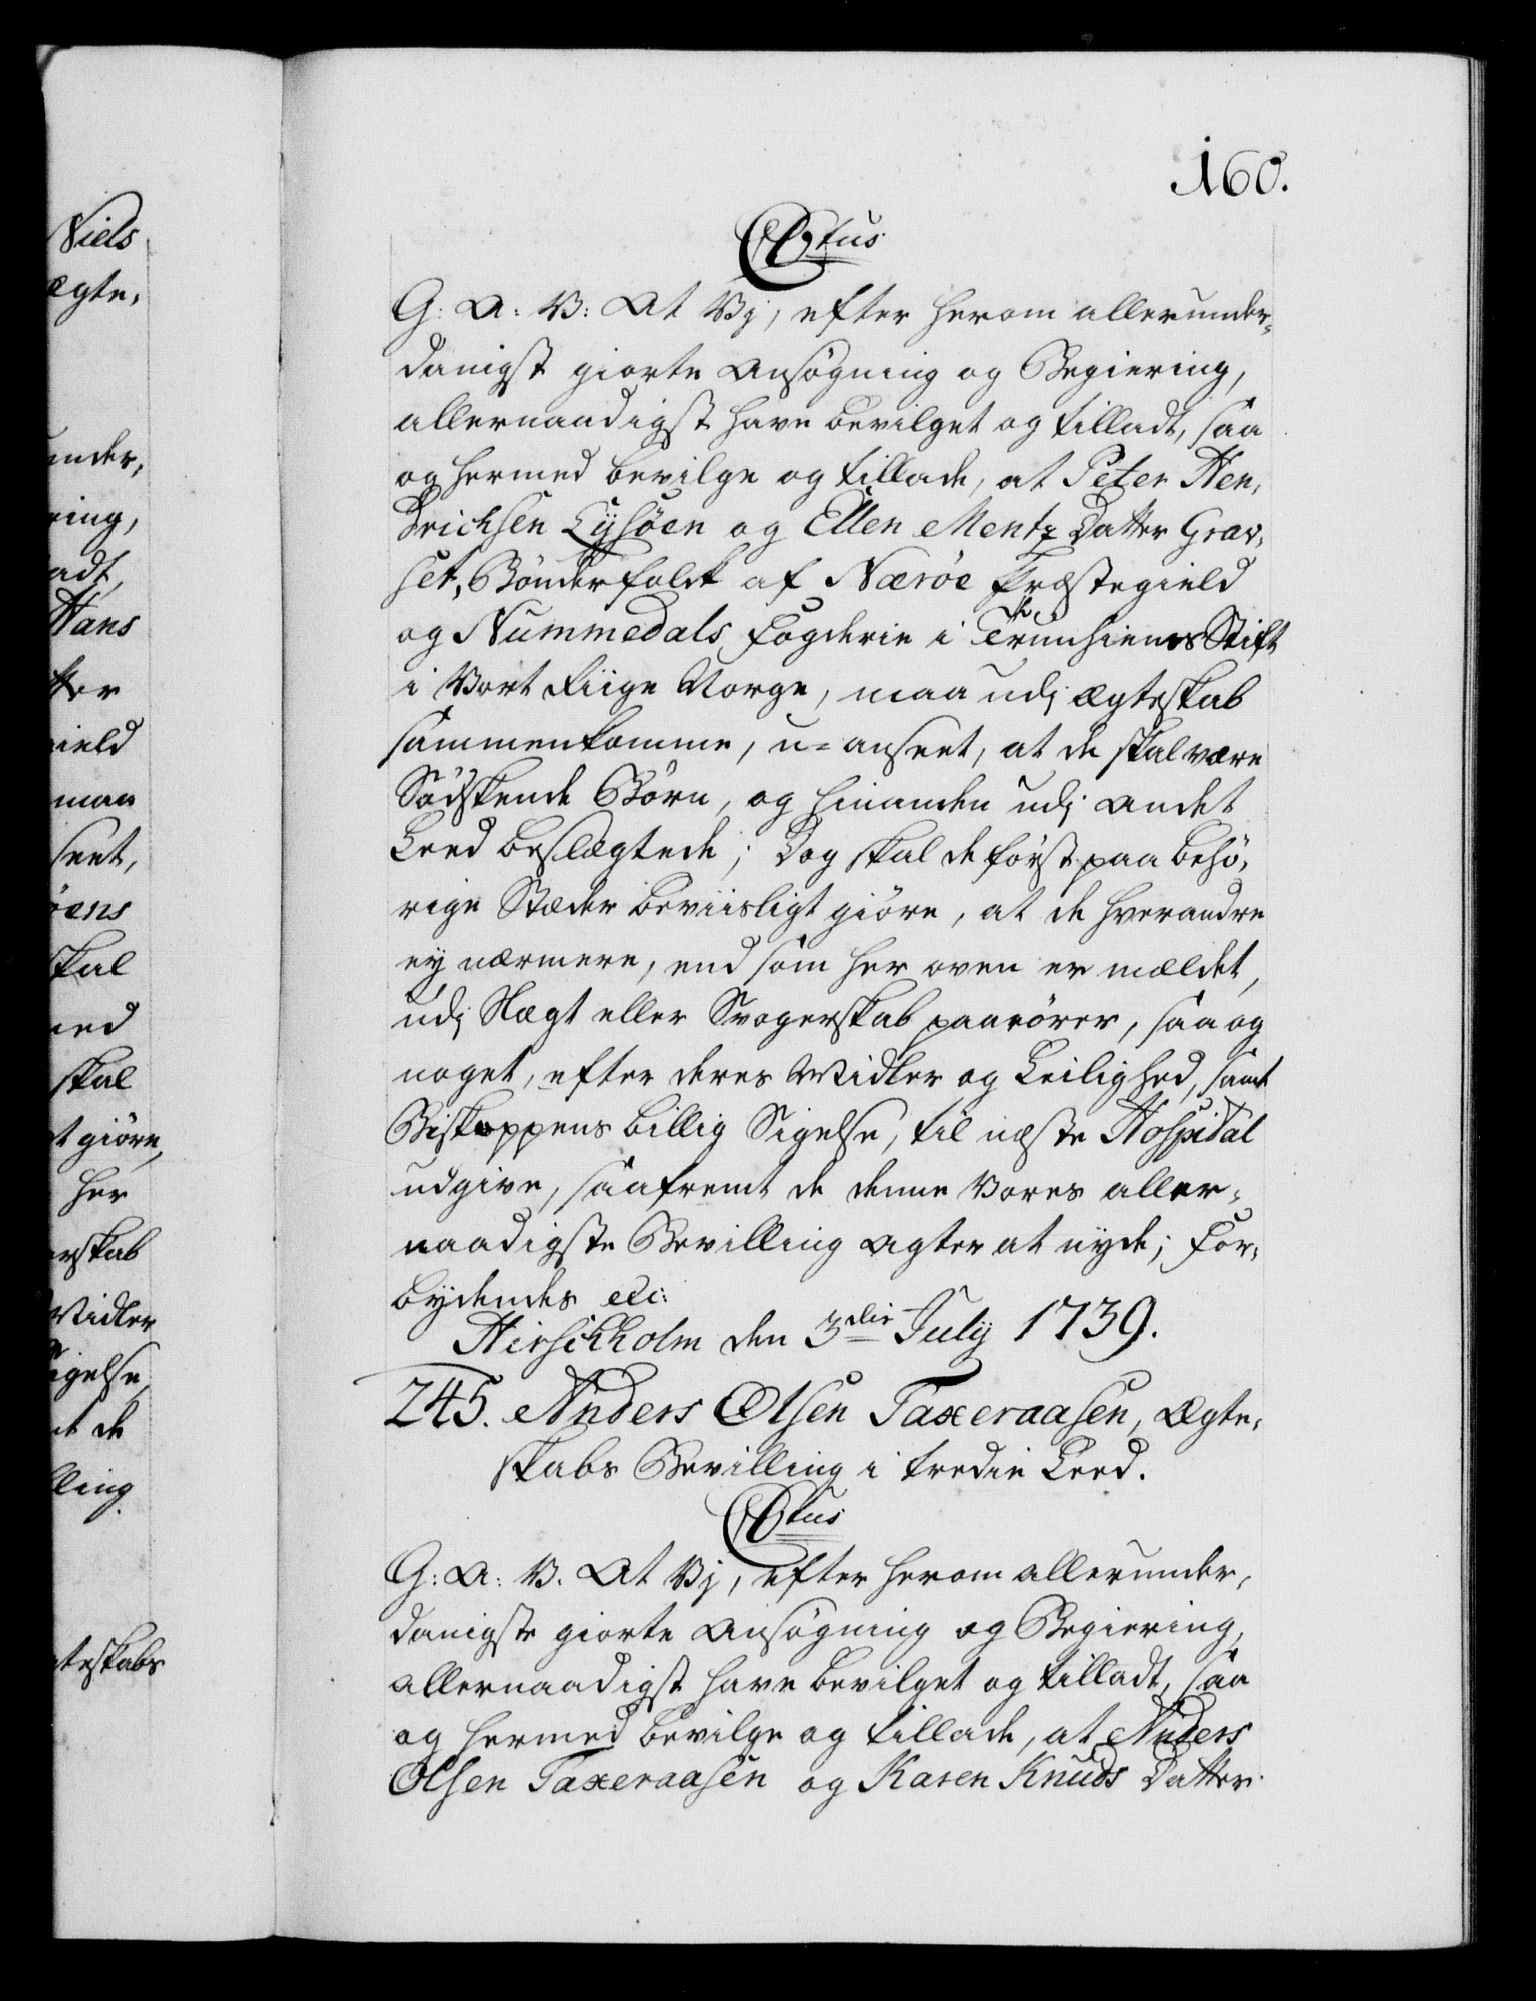 160.
Niels
ægte,
under,
ring,
adt,
Hans
tter
gield
maa
seet,
øens
skal
med
skal
t giøre,
her
erskab
Midler
igelse
nt de
lling
gteskabs
C6tus
G: A: V: At Vj, efter herom allerunder-
danigst giorte Ansøgning og Begiering,
allernaadigst have bevilget og tilladt, saa
og hermed bevilge og tillade, at Peter Hen,
drichsen Lysøen og Ellen Mentz Datter Grav,
set, Bønderfolck af Nærøe Præstegield
og Nummedals Fogderie i Trunhiems Stift
i Vort Riige Norge, maa udj Ægteskab
sammenkomme, u=anseet, at de skal være
Sødskende Børn, og hinanden udj andet
Leed beslægtede; Dog skal de først paa behø,
rige Stæder beviisligt giøre, at de hverandre
ey nærmere, end som her oven er mældet,
udj Slægt eller Svogerskab paarører, saa og
noget, efter deres Midler og Leilighed, samt
Biskoppens billig Sigelse, til næste Hospital
udgive, saafremt de denne Vores aller-
naadigste Bevilling agter at nyde; For,
bydendes etc:
Hirschholm den 3die July 1739.
245. Anders Olsen Taxeraasen, Ægte,
skabs Bevilling i tredie Leed.
C6tus
G: A: V. At Vj, efter herom allerunder,
danigste giorte Ansøgning og Begiering,
allernaadigst have bevilget og tilladt, saa
og hermed bevilge og tillade, at Anders
Olsen Taxeraasen og Karen Knuds Datter